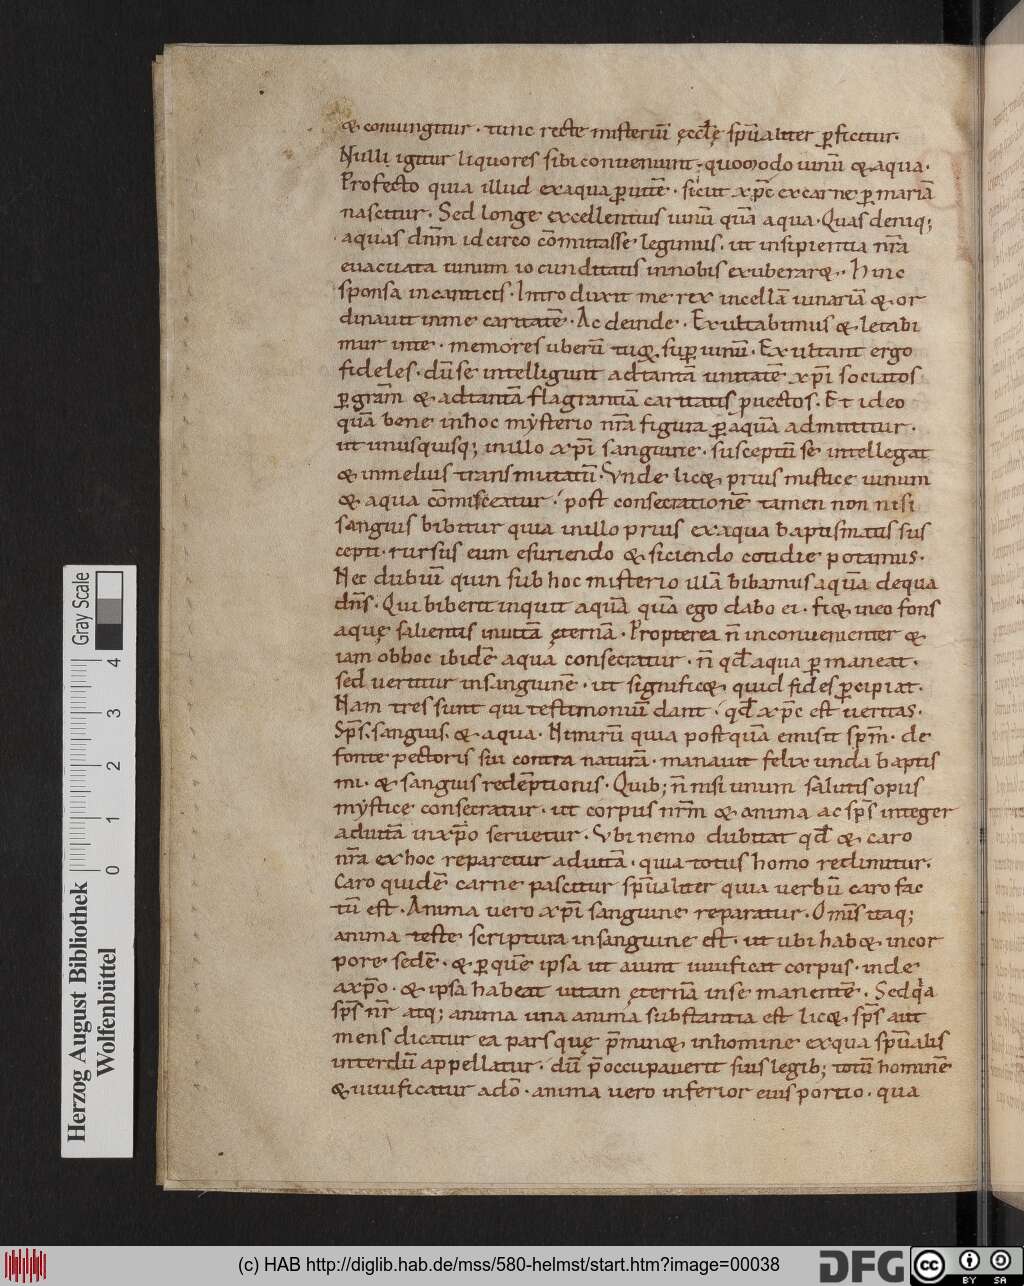 & coniungitur · tunc recte misteriū ęccłę spūaliter ꝑficitur·
Nulli igitur liquores sibi conueniunt · quomodo uinū & aqua·
Profecto quia illud ex aqua ꝑ uitē · sicut xp̄c ex carne ꝑ mariā
nascitur · Sed longe excellentius uinū quā aqua · Quas deniq;
aquas dnm̄ idcirco cōmutasse legimus · ut insipientia nr̄a
euacuata uinum iocunditatis in nobis exuberar& · Hinc
sponsa in canticis · Introduxit me rex in cellā uinariā & or
dinauit in me caritatē · Ac deinde · Exultabimus & letabi
mur in te · memores uberū tuoꝝ suꝑ uinū · Exultant ergo
fideles · dū se intelligunt ad tantā unitatē xp̄i sociatos
ꝑ grām & ad tantā flagrantiā caritatis ꝓuectos · Et ideo
quā bene in hoc mẏsterio nr̄a figura ꝑ aquā admittitur ·
ut unusquisq; in illo xp̄i sanguine · susceptū se intellegat
& in melius transmutatū · Vnde lic& prius mistice uinum
& aqua cōmisceatur · post consecrationē tamen non nisi
sanguis bibitur quia in illo prius ex aqua baptismatis sus
cepti · rursus eum esuriendo & siciendo cotidie potamus ·
Nec dubiū quin sub hoc misterio illā bibamus aquā de qua
dn̄s · Qui biberit inquit aquā quā ego dabo ei · fi& in eo fons
aquę salientis in uitā ęternā · Propterea n̄ inconuenienter &
iam ob hoc ibidē aqua consecratur · n̄ qđ aqua ꝑmaneat ·
sed uertitur in sanguinē · ut signific& quid fides ꝑcipiat ·
Nam tres sunt qui testimoniū dant · qđ xp̄c est ueritas ·
Sp̄s · sanguis · & aqua · Nimirū quia postquā emisit sp̄m · de
fonte pectoris sui contra naturā · manauit felix unda baptis
mi · & sanguis redēptionis · Quib; n̄ nisi unum salutis opus
mẏstice consecratur · ut corpus nr̄m & anima ac sp̄s integer
ad uitā in xp̄o seruetur · Vbi nemo dubitat qđ & caro
nr̄a ex hoc reparetur ad uitā · quia totus homo redimitur ·
Caro quidē carne pascitur spūaliter quia uerbū caro fac
tū est · Anima uero xp̄i sanguine reparatur · Omīs itaq;
anima teste scriptura in sanguine est · ut ubi hab& in cor
pore sedē · & ꝑ quē ipsa ut aiunt uiuificat corpus · inde
a xp̄o · & ipsa habeat uitam ęternā in se manentē · Sed qa
sp̄s nr̄ atq; anima una anima substantia est lic& sp̄s aut
mens dicatur ea pars quę p̄min& in homine ex qua spūalis
interdū appellatur · dū p̄occupauerit suis legib; totū hominē
& uiuificatur a dō · anima uero inferior eius portio · qua
Herzog August Bibliothek
Wolfenbüttel
0 1 2 3 4
Gray Scale
(c) HAB http://diglib.hab.de/mss/580-helmst/start.htm?image=00038
DFG
cc BY SA